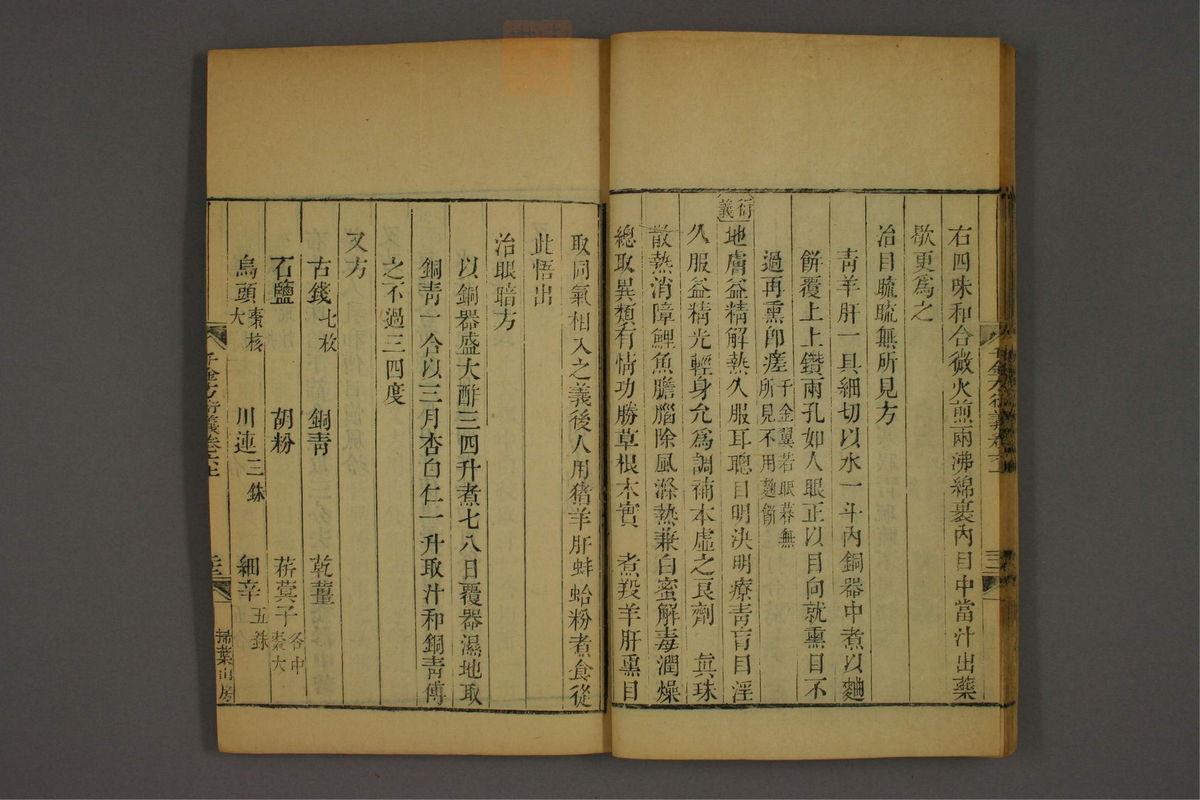 右四味和合微火煎兩沸綿裹內目中當汁出藥
歇更爲之
治目䀮䀮無所見方
青羊肝一具細切以水一斗內銅器中煮以麯
餅覆上上鑽兩孔如人眼正以目向就熏目不
過再熏卽瘥千金翼若眼暮無所見不用麯餅
衍義
地膚益精解熱久服耳聰目明決明療青盲目淫
久服益精光輕身允爲調補本虛之良劑 眞珠
散熱消障鯉魚膽腦除風滌熱兼白蜜解毒潤燥
總取異類有情功勝草根木實 煮羖羊肝熏目
取同氣相入之義後人用猪羊肝蚌蛤粉煮食從
此悟出
治眼暗方
以銅器盛大酢三四升煮七八日覆器濕地取
銅青一合以三月杏白仁一升取汁和銅青傅
之不過三四度
又方
古錢七枚 銅青 乾薑
石鹽 胡粉 菥蓂子各中棗大
烏頭棗核大 川連三銖 細辛五銖
千金方衍義卷六上
掃葉山房